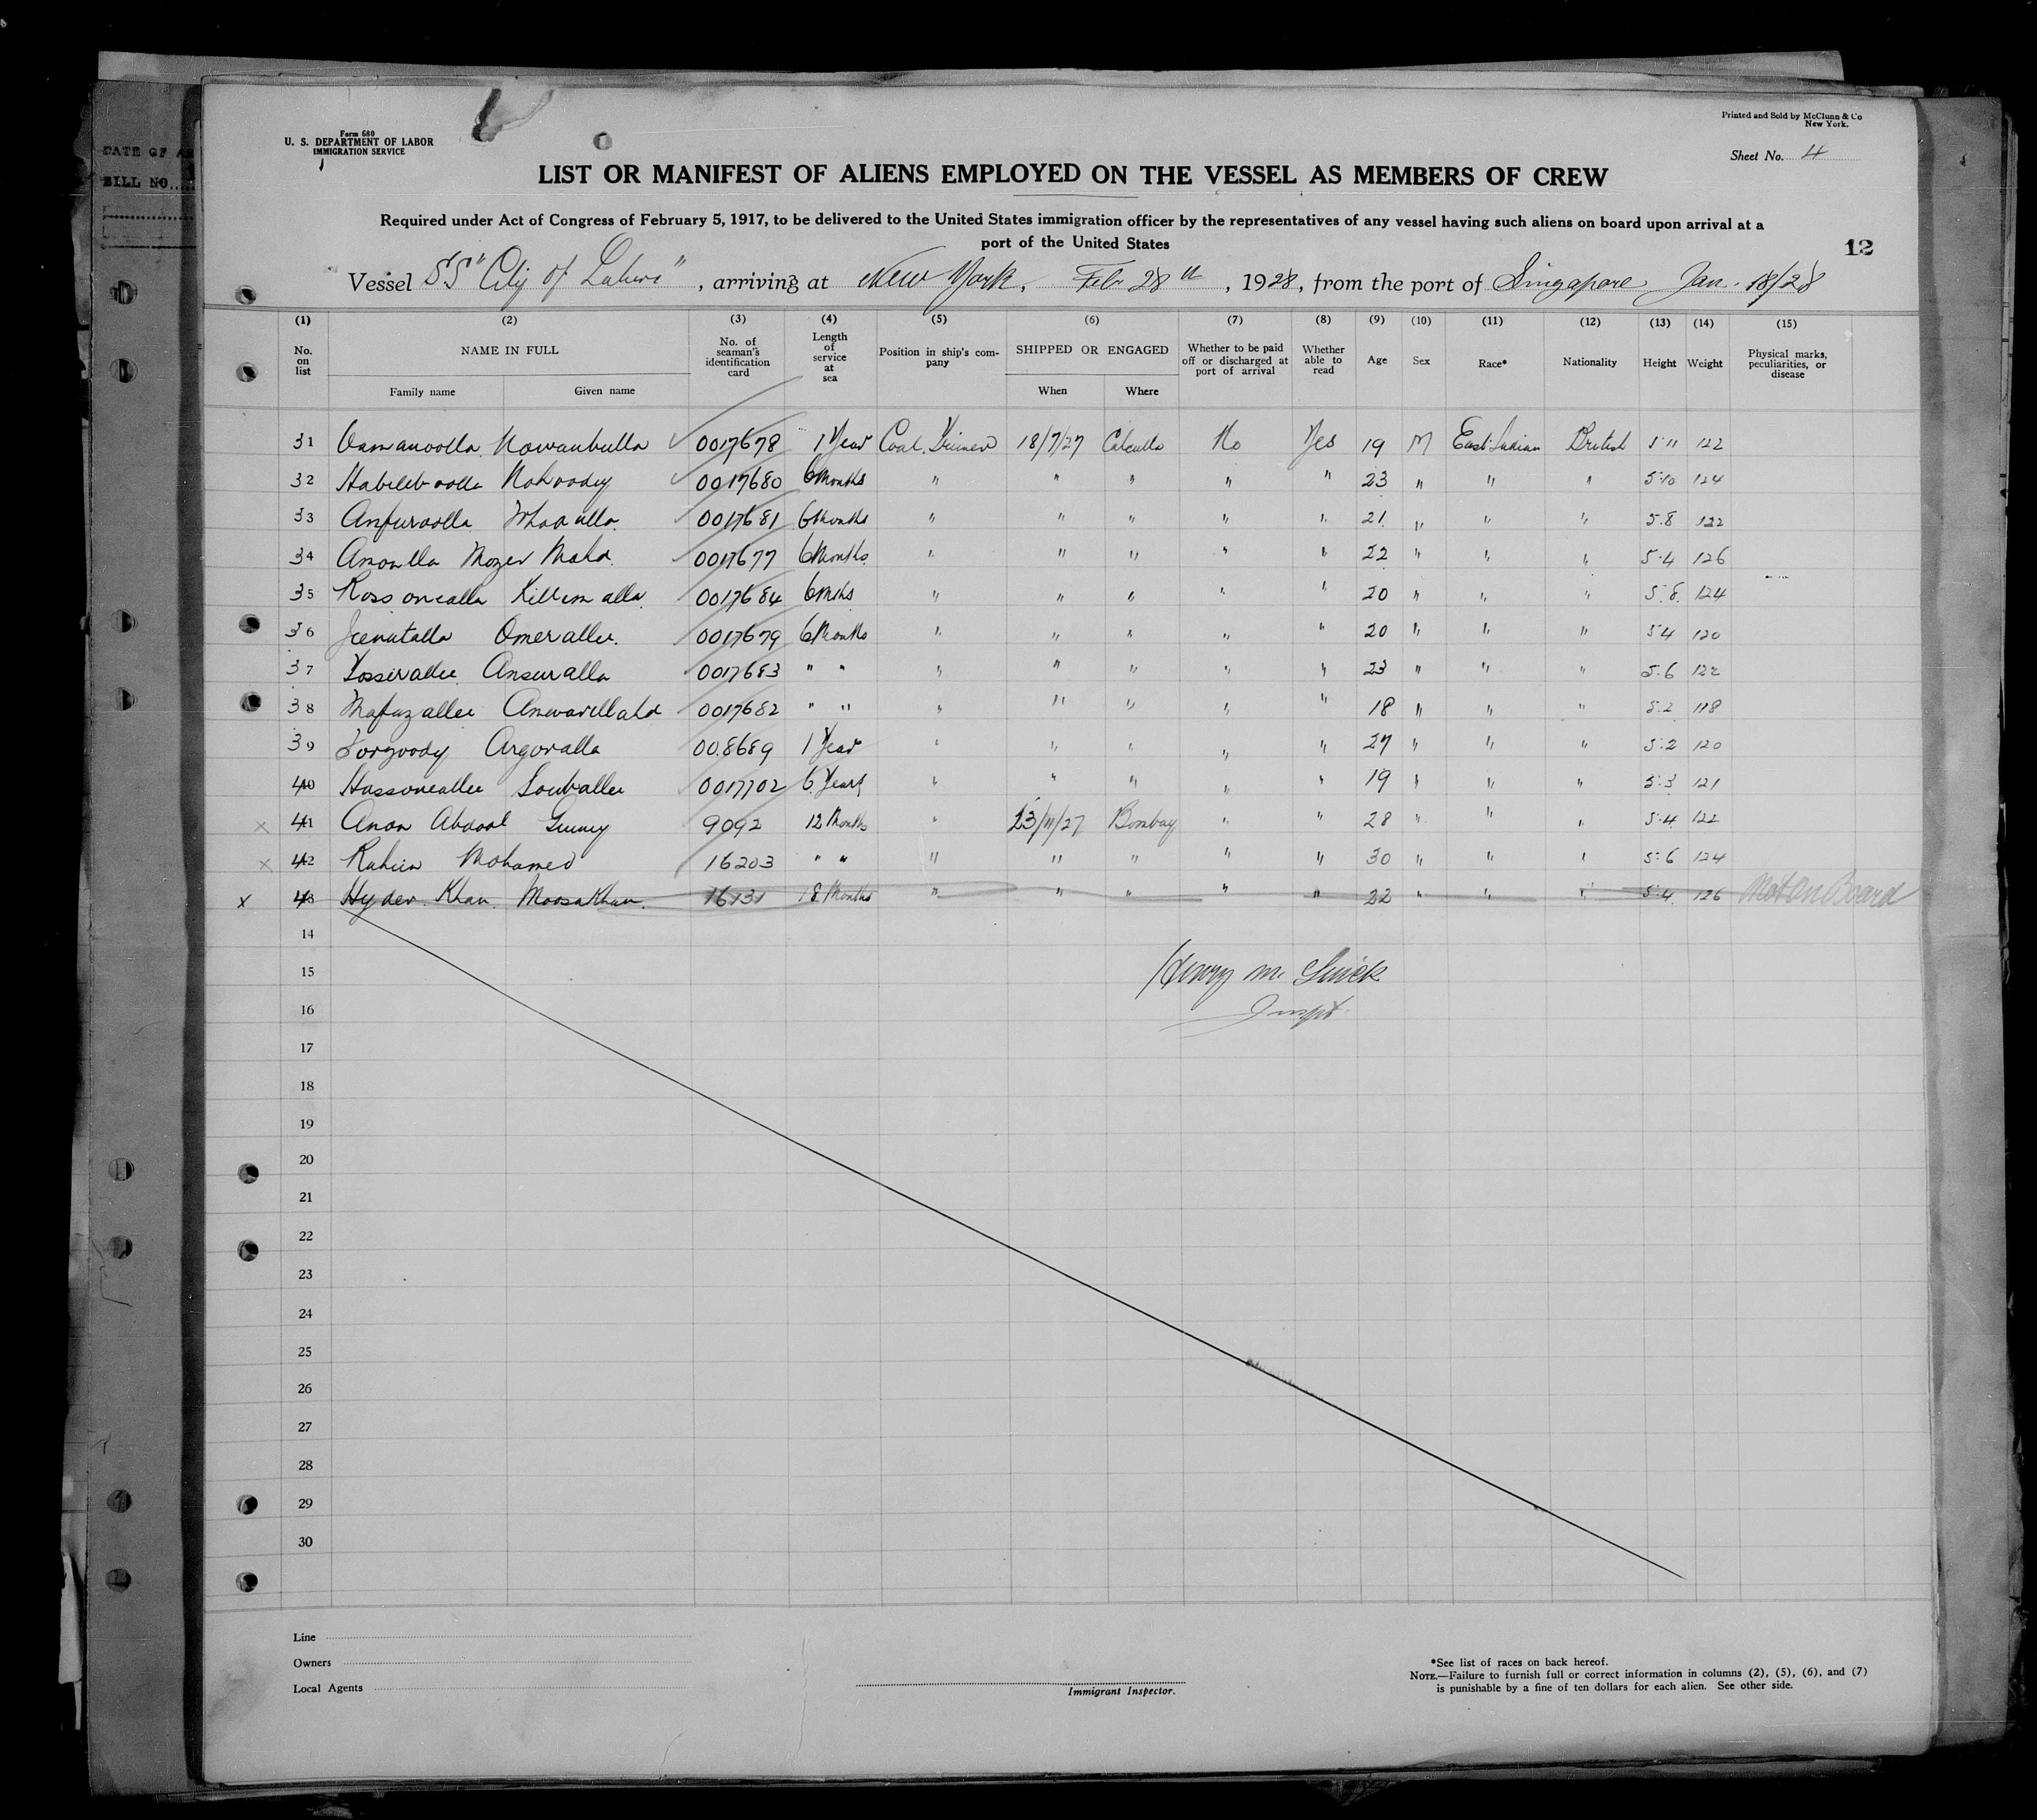 DATE OF AR
BILL NO.
Form 680
U. S. DEPARTMENT OF LABOR
IMMIGRATION SERVICE
Printed and Sold by McClunn & Co
New York.
Sheet No. 4
LIST OR MANIFEST OF ALIENS EMPLOYED ON THE VESSEL AS MEMBERS OF CREW
Required under Act of Congress of February 5, 1917, to be delivered to the United States immigration officer by the representatives of any vessel having such aliens on board upon arrival at a
port of the United States
12
Vessel SS "City of Lahore", arriving at New York, Feb 28th, 1928, from the port of Singapore, Jan. 18/28
(1) (2) (3) (4) (5) (6) (7) (8) (9) (10) (11) (12) (13) (14) (15)
No. on list NAME IN FULL Family name Given name No. of seaman's identification card Length of service at sea Position in ship's company SHIPPED OR ENGAGED When Where Whether to be paid off or discharged at port of arrival Whether able to read Age Sex Race* Nationality Height Weight Physical marks, peculiarities, or disease
31 0017678 1 Year Coal Trimmer 18/7/27 Calcutta No Yes 19 M East Indian British 5'11 122
32 0017680 6 Months " " " " " 23 " " " 5'10 124
33 0017681 6 Months " " " " " 21 " " " 5.8 122
34 0017677 6 Months " " " " " 22 " " " 5.4 126
35 0017684 6 Mths " " " " " 20 " " " 5.8 124
36 Omerallee 0017679 6 Months " " " " " 20 " " " 5.4 120
37 Ansuralla 0017683 " " " " " " " 23 " " " 5.6 122
38 Mafuzallee 0017682 " " " " " " " 18 " " " 5.2 118
39 Argoralla 00.8689 1 Year " " " " " 27 " " " 5.2 120
40 Hassoneallee 0017702 6 Years " " " " " 19 " " " 5.3 121
x 41 Abdool 9092 12 Months " 23/11/27 Bombay " " 28 " " " 5.4 122
x 42 Rahim Mohamed 16203 " " " " " " " 30 " " " 5.6 124
x 43 Hyder Khan Moosakhan 16131 18 Months " " " " " 22 " " " 5.4 126 Not On Board
14
15 Henry M.
16 Inspt.
17
18
19
20
21
22
23
24
25
26
27
28
29
30
Line
Owners
Local Agents
Immigrant Inspector.
*See list of races on back hereof.
NOTE.—Failure to furnish full or correct information in columns (2), (5), (6), and (7)
is punishable by a fine of ten dollars for each alien. See other side.